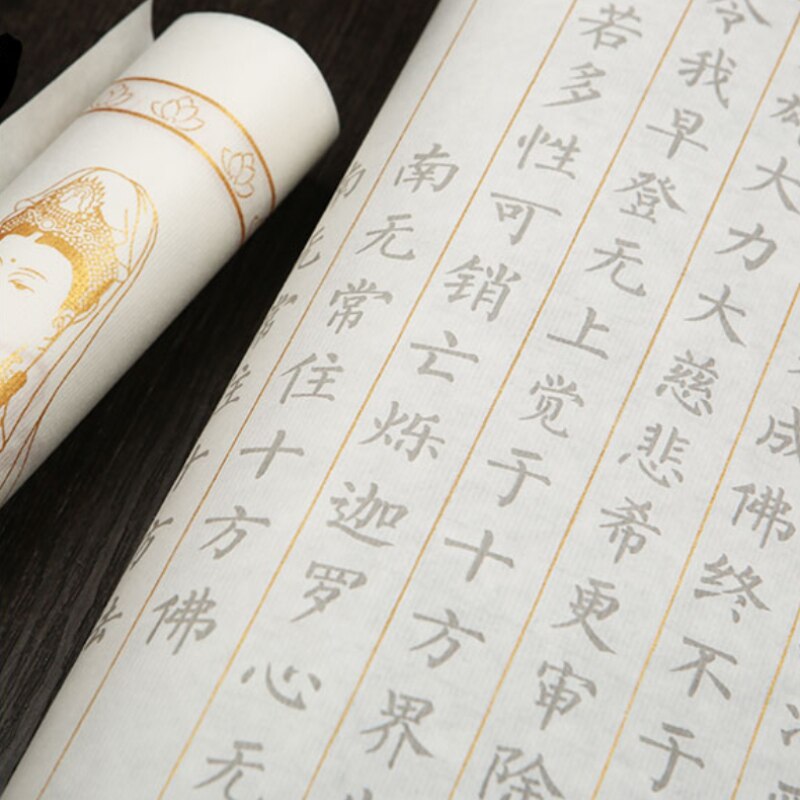 成佛终不于
雄大力大慈悲希更审除
令我早登无上觉于十方界
若多性可销亡烁迦罗心无
南无常住十方佛
南无常住十方法